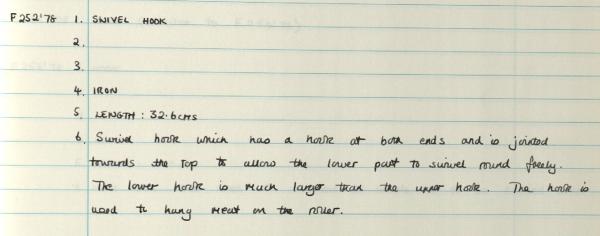 F252'78 1. SWIVEL HOOK
2.
3.
4. IRON
5. LENGTH : 32.6cms
6. Swivel hook which has a hook at both ends and is jointed
towards the top to allow the lower part to swivel round freely.
The lower hook is much larger than the upper hook. The hook is
used to hang meat on the roller.